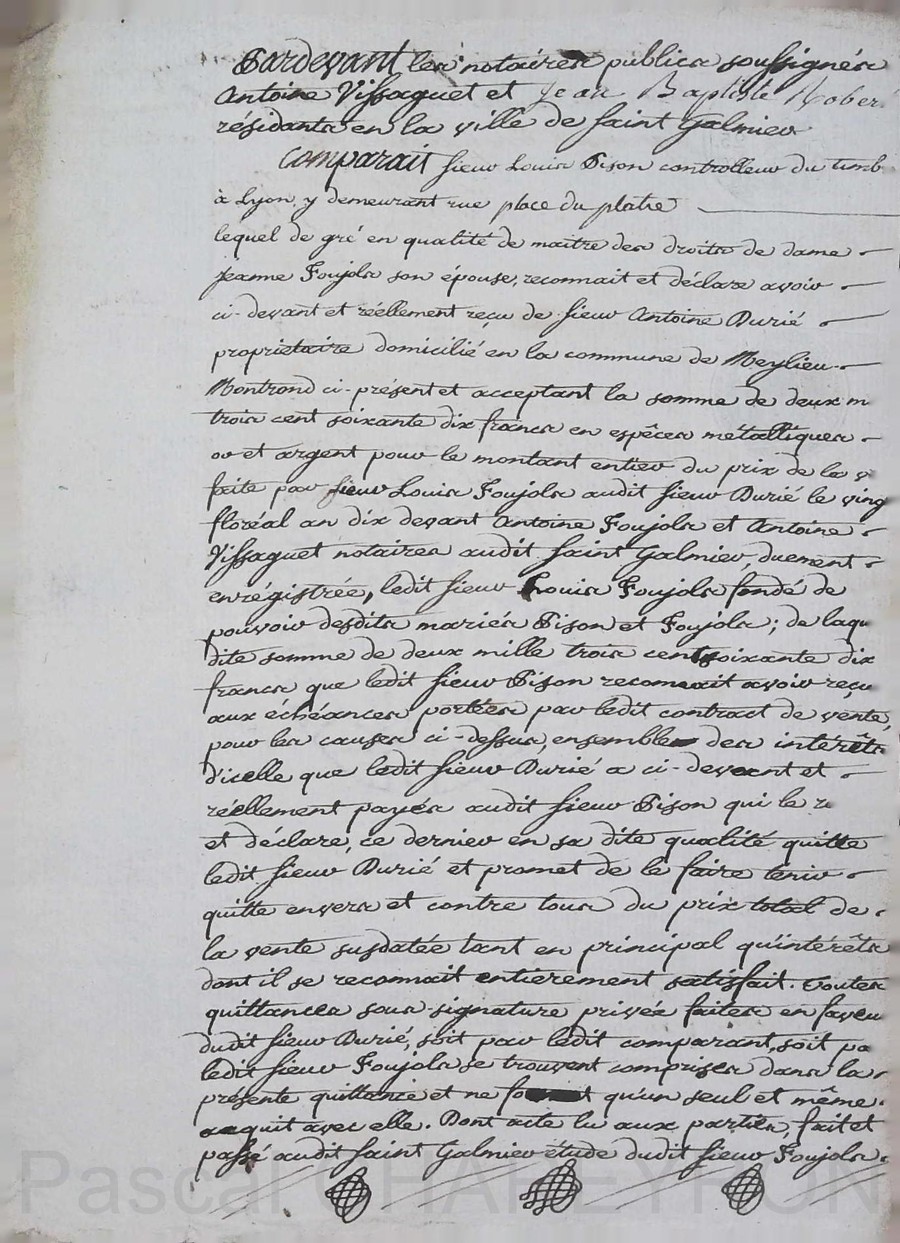 Pardevant les notaires publics soussignés
Antoine Vissaguet et Jean Baptiste Rober
résidants en la ville de saint Galmier
Comparait sieur Louis Pison controlleur du timb
à Lyon, y demeurant rue place du platre
lequel de gré en qualité de maitre des droits de dame
Jeanne Foujols son épouse, reconnait et déclare avoir
ci-devant et réellement reçu de sieur Antoine Durié
proprietaire domicilié en la commune de Meylieu-
Montrond ci-présent et acceptant la somme de deux m
trois cent soixante dix francs en espêces métalliques
or et argent pour le montant entier du prix de la v
faite par sieur Louis Foujols audit sieur Durié le ving
floréal an dix devant Antoine Foujols et Antoine
Vissaguet notaires audit saint Galmier, duement
enrégistrée, ledit sieur Louis Foujols fondé de
pouvoir desdits mariés Pison et Foujols ; de laqu
dite somme de deux mille trois cent soixante dix
francs que ledit sieur Pison reconnait avoir reçu
aux échéances portées par ledit contract de vente,
pour les causes ci-dessus, ensemble des intérêts
d'icelle que ledit sieur Durié a ci-devant et
réellement payés audit sieur Pison qui le r
et déclare, ce dernier en sa dite qualité quitte
ledit sieur Durié et promet de le faire tenir
quitte envers et contre tous du prix total de
la vente susdatée tant en principal qu'intérêts
dont il se reconnait entierement satisfait. Toutes
quittances sous-signature privée faites en faveu
dudit sieur Durié, soit par ledit comparant, soit pa
ledit sieur Foujols se trouvent comprises dans la
présente quittance et ne qu'un seul et même
acquit avec elle. Dont acte lu aux parties, fait et
passé audit saint Galmier étude dudit sieur Foujols.
Pascal CHALEYRON